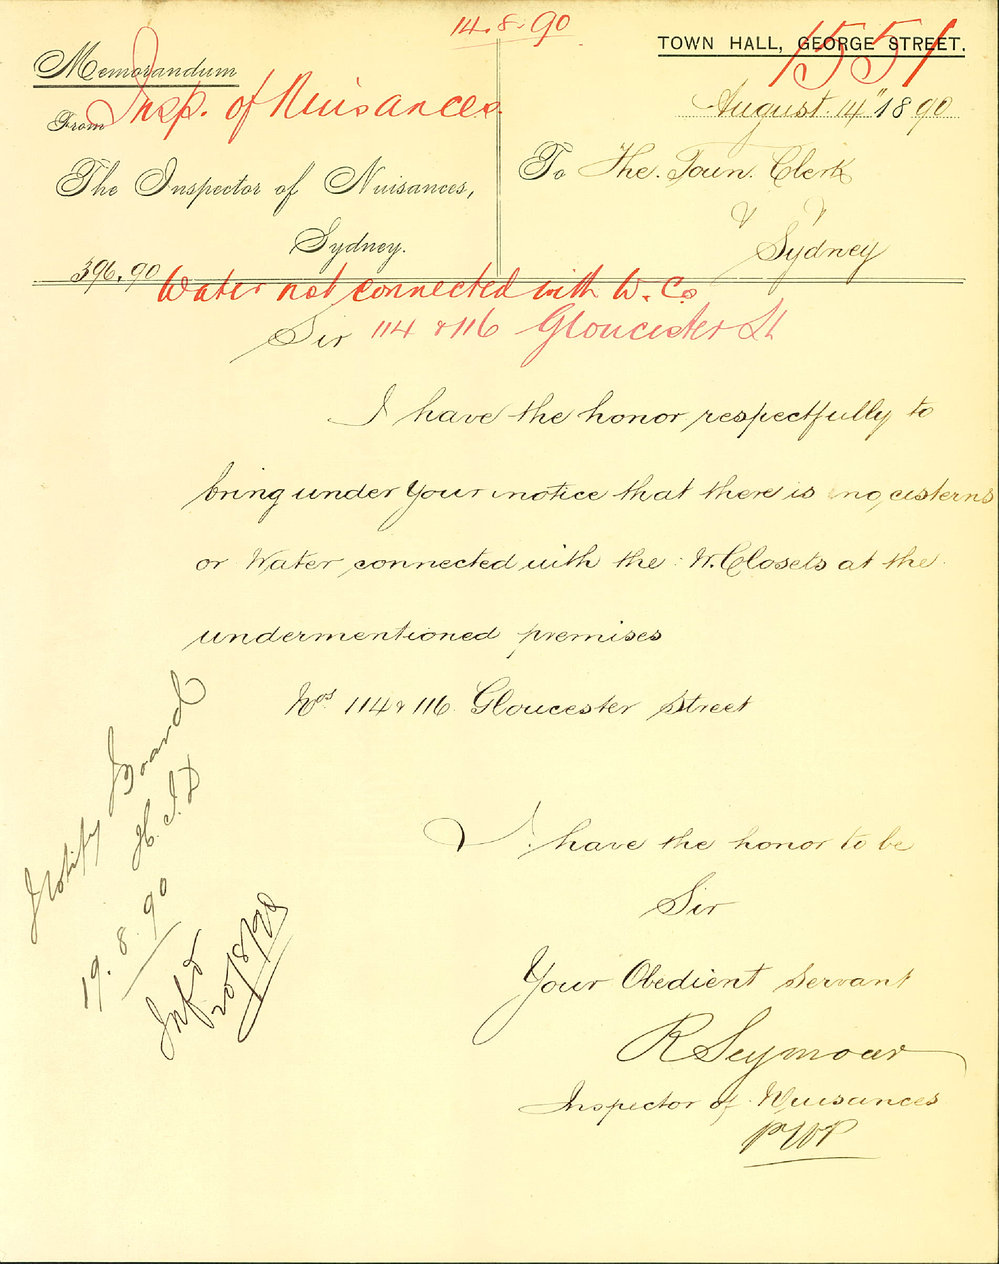 14.8.90
1551
TOWN HALL, GEORGE STREET.
Memorandum
Insp. of Nuisances.
From
August. 14" 1890
The Inspector of Nuisances,
Sydney.
To The. Town. Clerk
Sydney
396.90
Water not connected with W. Cs
114 & 116 Gloucester St
Sir
I have the honor respectfully to
bring under Your notice that there is no cisterns
or Water connected with the W. Closets at the
undermentioned premises
Nos 114 & 116 Gloucester Street
Notify Board
H.I.D
19.8.90
Infd
20/8/90
I have the honor to be
Sir
Your Obedient Servant
R Seymour
Inspector of Nuisances